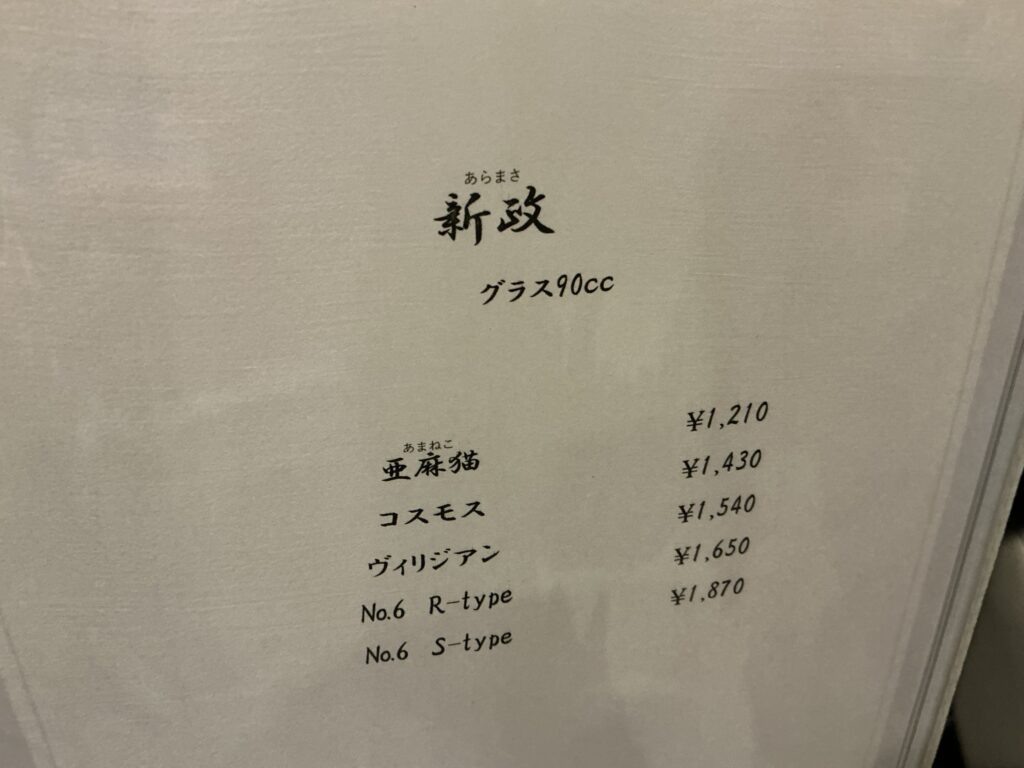 あらまさ
新政
グラス90cc
あまねこ
亜麻猫 ¥1,210
コスモス ¥1,430
ヴィリジアン ¥1,540
No.6 R-type ¥1,650
No.6 S-type ¥1,870